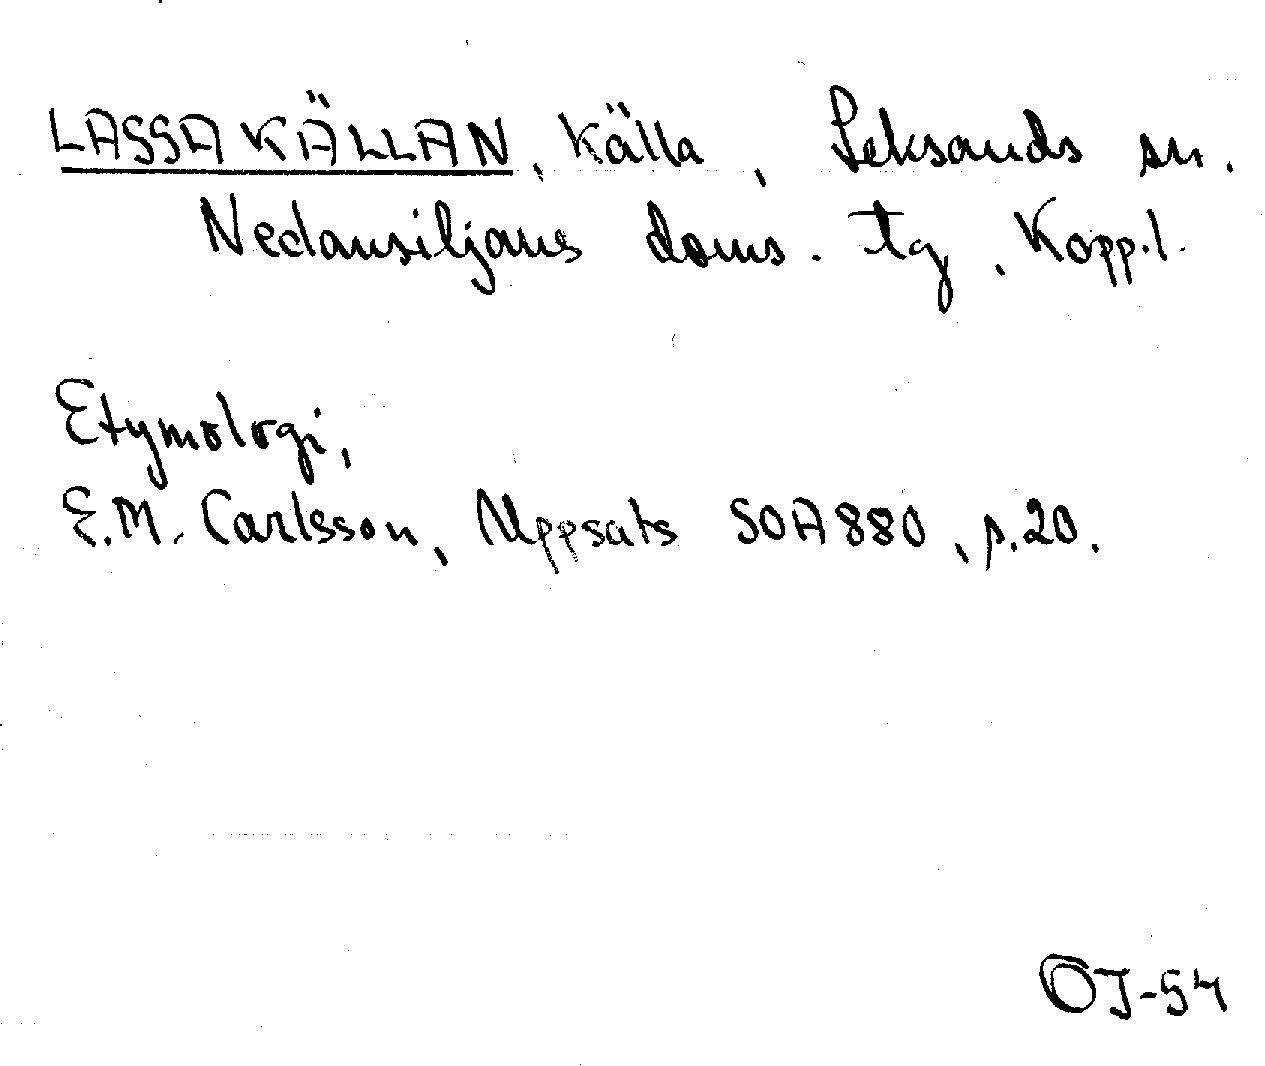 LASSAKÄLLAN, Källa, Leksands sn.
Nedansiljans doms. tg, Kopp.l.
Etymologi,
E.M. Carlsson, Uppsats SOA880, p.20.
OJ-54